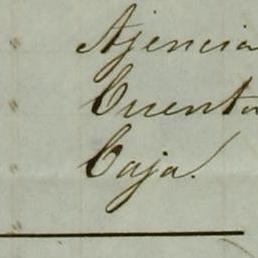 Ajencia
Cuenta
Caja.